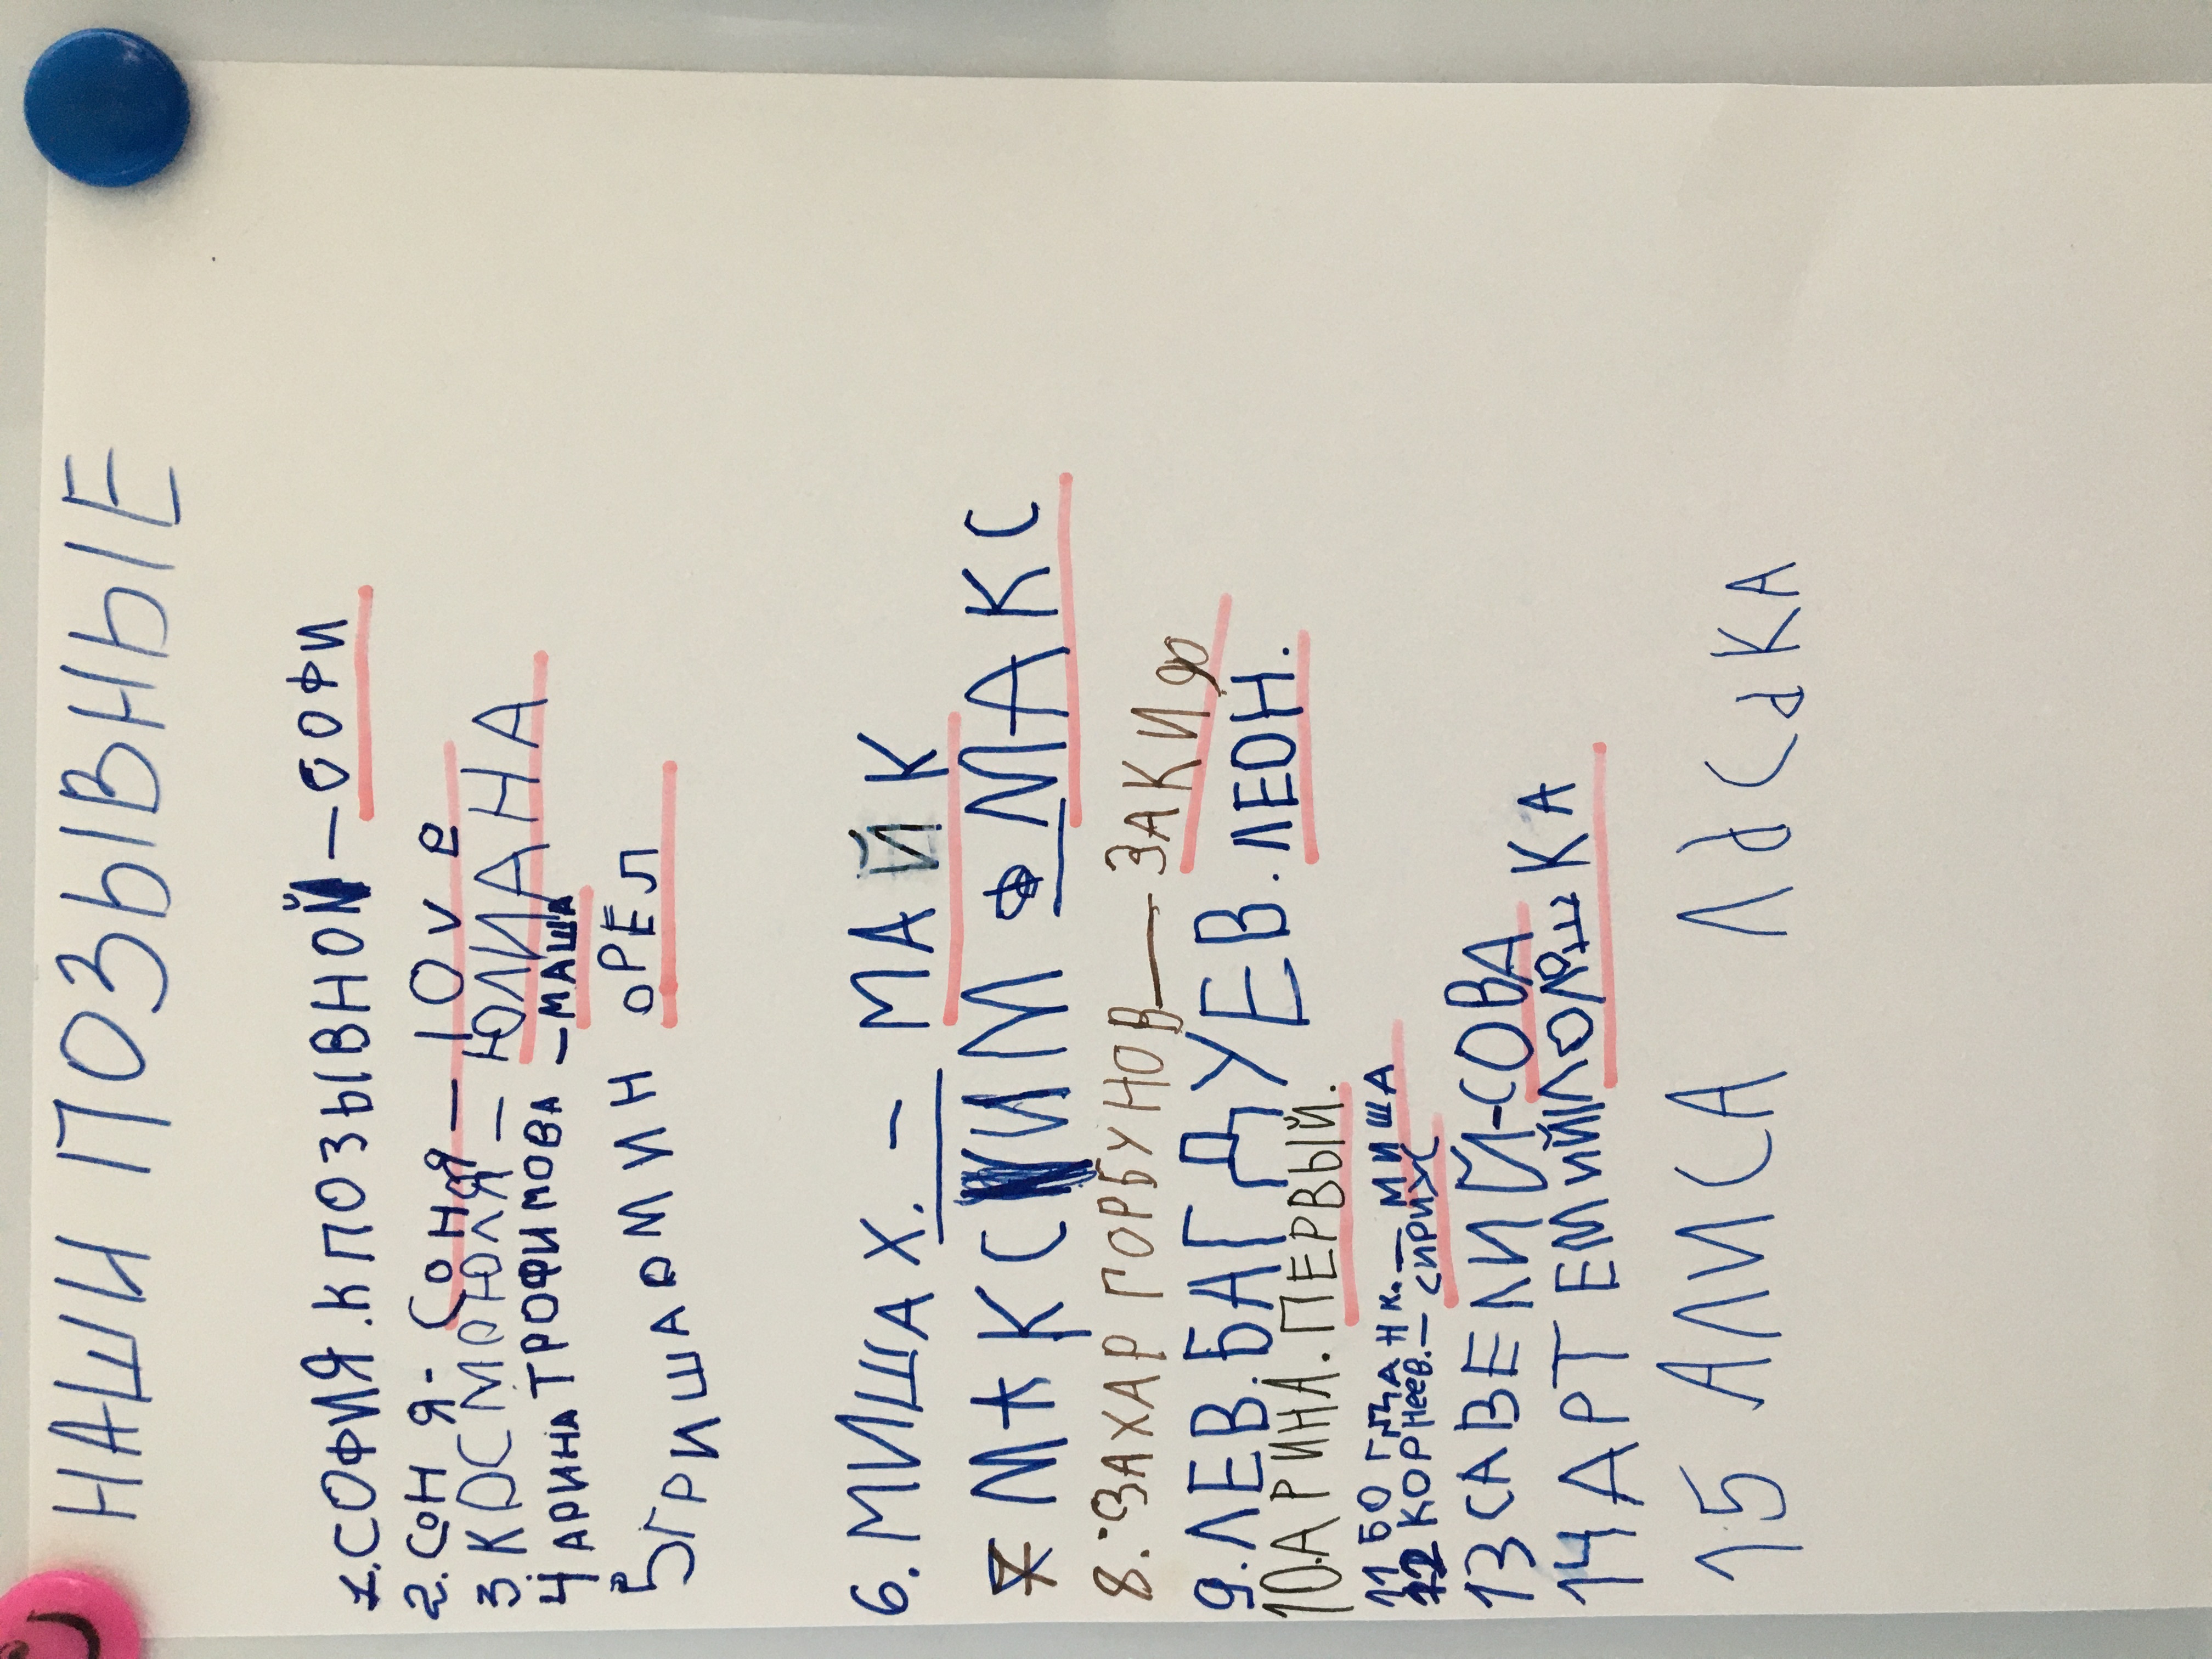 НАШИ ПОЗЫВНЫЕ
1.СОФИЯ.К ПОЗЫВНОЙ — СОФИ
2.СОНЯ - СОНЯ — lOve
3 КОСМОНЮЛЯ — ЮЛИАНА
4 АРИНА ТРОФИМОВА — МАША
5 ГРИША ОМИН ОРЁЛ
6. МИША Х. — МАЙК
7 МАКСИМ Ф МАКС
8. ЗАХАР ГОРБУНОВ — ЗАКИ
9. ЛЕВ. БАГДУЕВ. ЛЕОН.
10.АРИНА. ПЕРВЫЙ.
11 БОГДАН К. — МИША
12 КОРНеев. — СИРИУС
13 САВЕЛИЙ - СОВА
14 АРТЕМИЙ ЛОЛОШКА
15 АЛИСА ЛАСКА